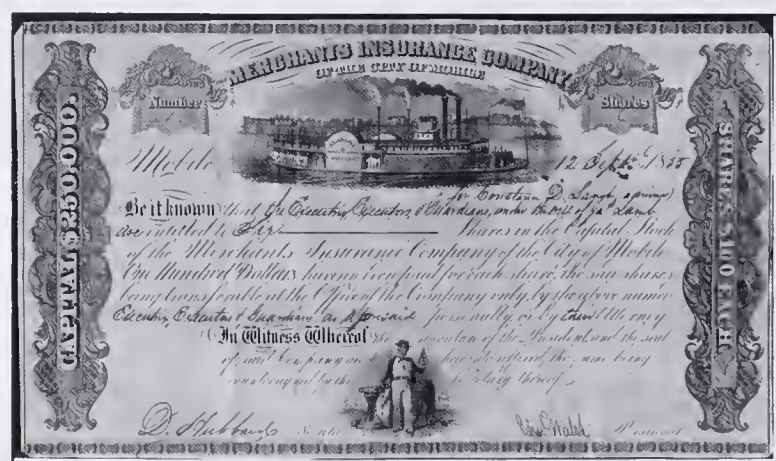 MERCHANTS INSURANCE COMPANY
OF THE CITY OF MOBILE
Number
Shares
CAPITAL $250,000.
SHARES $100 EACH
Mobile 12 Sept 18
Be it known that the Executrix, Executors, & Guardians, under the will of
for D. a minor
are entitled to Six Shares in the Capital Stock
of the Merchants Insurance Company of the City of Mobile
One Hundred Dollars having been paid for each share, the said shares
being transferable at the Office of the Company only, by the above named
Executrix, Executors & Guardians as aforesaid personally, or by their Attorney
In Witness Whereof the signature of the President and the seal
of said Company are hereunto affixed, the same being
countersigned by the Secretary thereof
D. Hubbard Walsh President